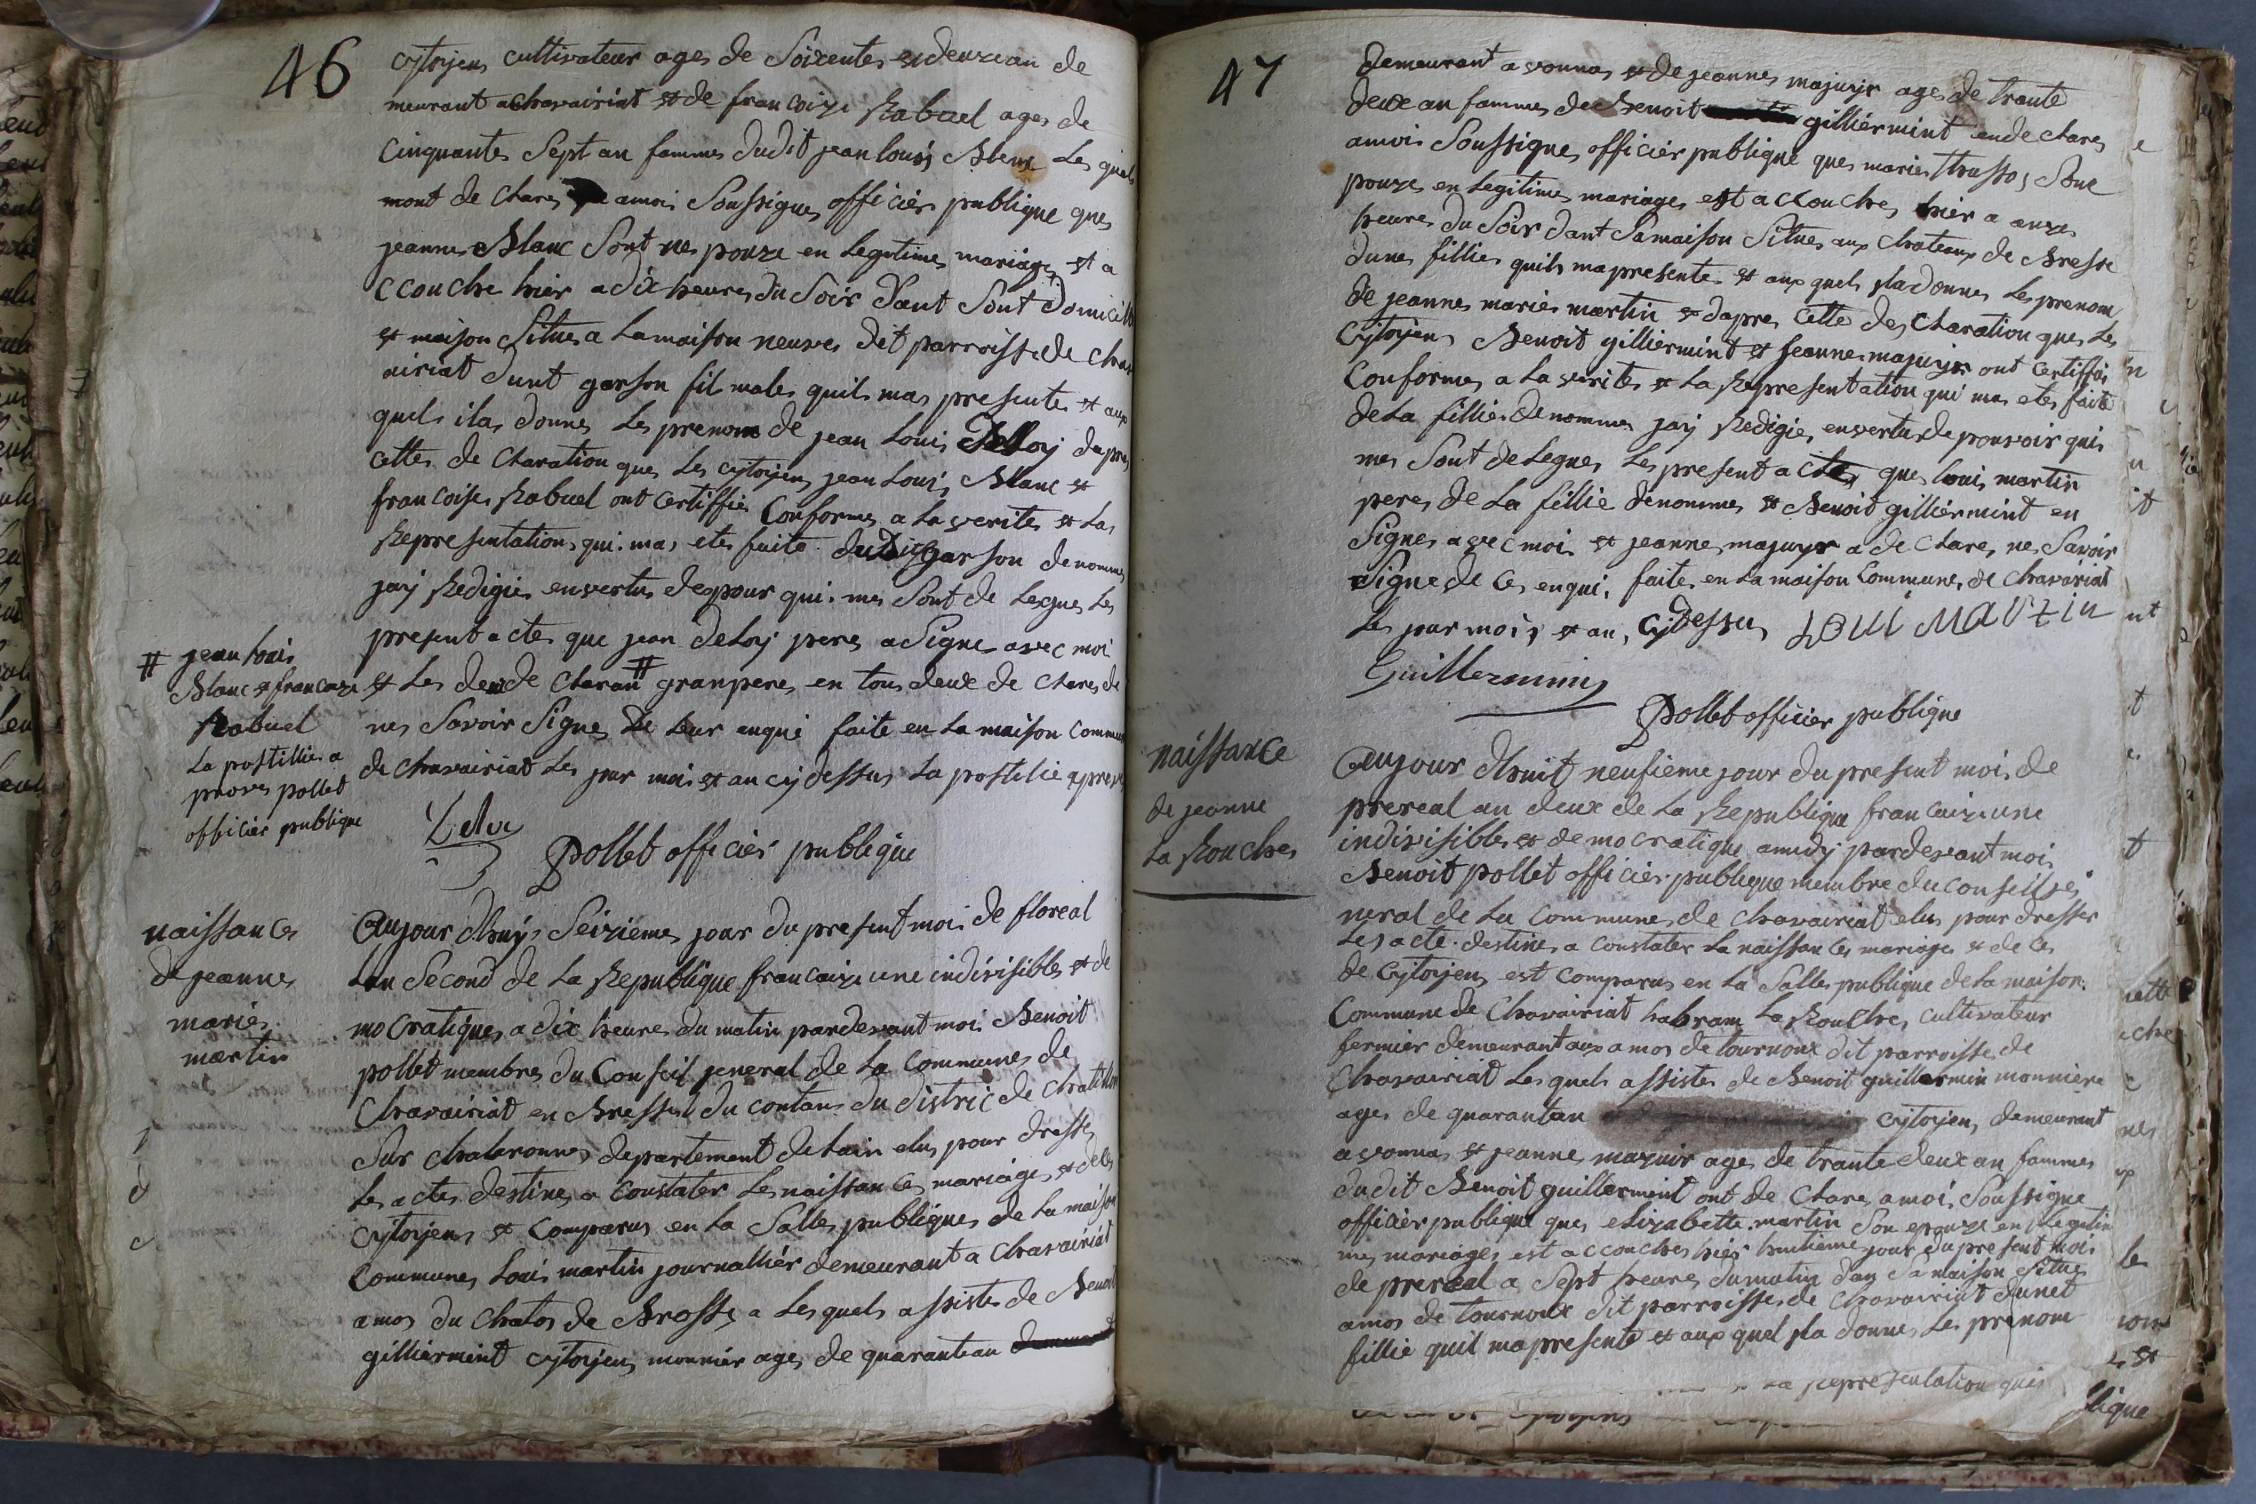 46
cytoyens cultivateur ages de Soixentes et deuxean de
meurant a Chavairiat et de francoize Rabuel ages de
Cinquantes Sept an fammes dudit jean louis Blanc Les quels
mont de Clares amoi Soussignes officiér publique ques
jeannes Blanc Sont nes pouze en Legitimes mariages et a
ccouche hier a dix heures du Soir Dant Sont Domicille
et maison Situes a La maison neuves dit parroisse de Chav
airiat Dunt garson fil males quils mas presente et aux
quels ilas donnes Les prenom de jean Louis Deloij dapres
cettes de Claration ques Les cytoyens jean Louis Blanc et
francoises Rabuel ont certiffiés Conformes a La verites et La
Representations qui mas etes faite dudit garson denommes
jaij Redigies en vertus de pour qui mes Sont de Legues Les
present actes que jean deloij peres a Signes avec moi
et Les deux de Claran # granperes en tous deux de Clares de
nes Savoir Signes de Leur anqui faite en La maison commune
de chavairiat Les jour mois et an cy dessus La postilie aprove
# jean louis
Blanc et francoize
Rabuel
La postillies a
proves pollet
officiér publique
pollet officiér publique
naissances
de jeannes
maries
martin
Aujour dhuy Seizieme jour du present mois de floreal
Lan Second de La Republique francaize une indivisibles et de
mocratiques a dix heure du matin pardevant moi Benoit
pollet membres du Conseil jeneral de La communes de
Chavairiat en Bresse du contans du district de Chatillon
Sur Chalaronnes departement de Lain elus pour dresse
Les actes destines a Constater Les naissances mariages et deces
cytoyens et Comparus en La Salles publiques de La maison
Communes Louis martin journalliér demeurant a Chavairiat
amos du Chatos de Brosses a Les quels assistes de Benoit
gilliérmint cytoyens monniér ages de quarantean
47
Demeurant a vonnas et de jeannes majuyr ages de trante
deux an fammes de Benoit gilliérmint en de clares
amoi Soussignes officiér publique ques maries Son e
pouzes en Legitimes mariages est a ccouches hier a onzes
heures du Soir Dant Sa maison Situes aux Chateaux de Bresse
Dunes fillies quils ma presente et aux quels ila donnes Les prenom
de jeannes maries martin et dapres cette de Claration ques Les
Cytoyens Benoit gilliermint et jeannes majuyr ont certiffiés
Conformes a La verites et La Representation qui mas etes faite
de La fillies denommes jaij Redigies en vertus de pouvoir qui
mes Sont de Legues Les present actes ques louis martin
peres de La fillie denommes et Benoit gilliérmint en
Signes avec moi et jeannes majuyr a de Clares nes Savoir
Signe de Ces enqui faites en La maison Communes de Chavairiat
Les jour mois et an cy dessus Loui Martin
Guillermin
pollet officiér publique
naissance
de jeanne
La Rouches
Aujour dhuit neufieme jour du present mois de
prereal an deux de La Republique francaize une
indivisibles et democratique amidy pardevant moi
Benoit pollet officiér publique membre du Conseil je
neral de La Communes de Chavairiat elus pour dresser
Les acte destines a constater La naissances mariages et de ces
de cytoyens est comparus en La Salles publique de La maison
Commune de Chavairiat habram La Rouches cultivateur
fermiér demeurant aux amos de tournoux dit parroisse de
Chavairiat Les quels assistes de Benoit guillermin monniére
ages de quarantan cytoyens demeurant
a vonnas et jeannes mazuir ages de trante deux an fammes
dudit Benoit guillermint ont de Clare amoi Soussigne
officiér publique ques elizabette martin Son epouze en Legetim
mes mariages est a ccouches hiér huitiéme jour du present mois
de prereal a Sept heures du matin dan Sa maison Situes
amos de tournoux dit parroisses de Chavairiat dunet
fillie quil ma presente et aux quel ila donnes Les prenom
La representation qui